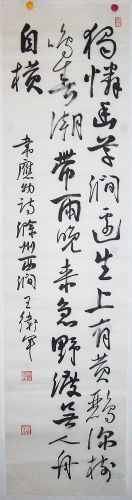 獨憐幽草澗邊生上有黃鸝深樹
鳴春潮帶雨晚來急野渡無人舟
自橫
韋應物詩滁州西澗王衛軍